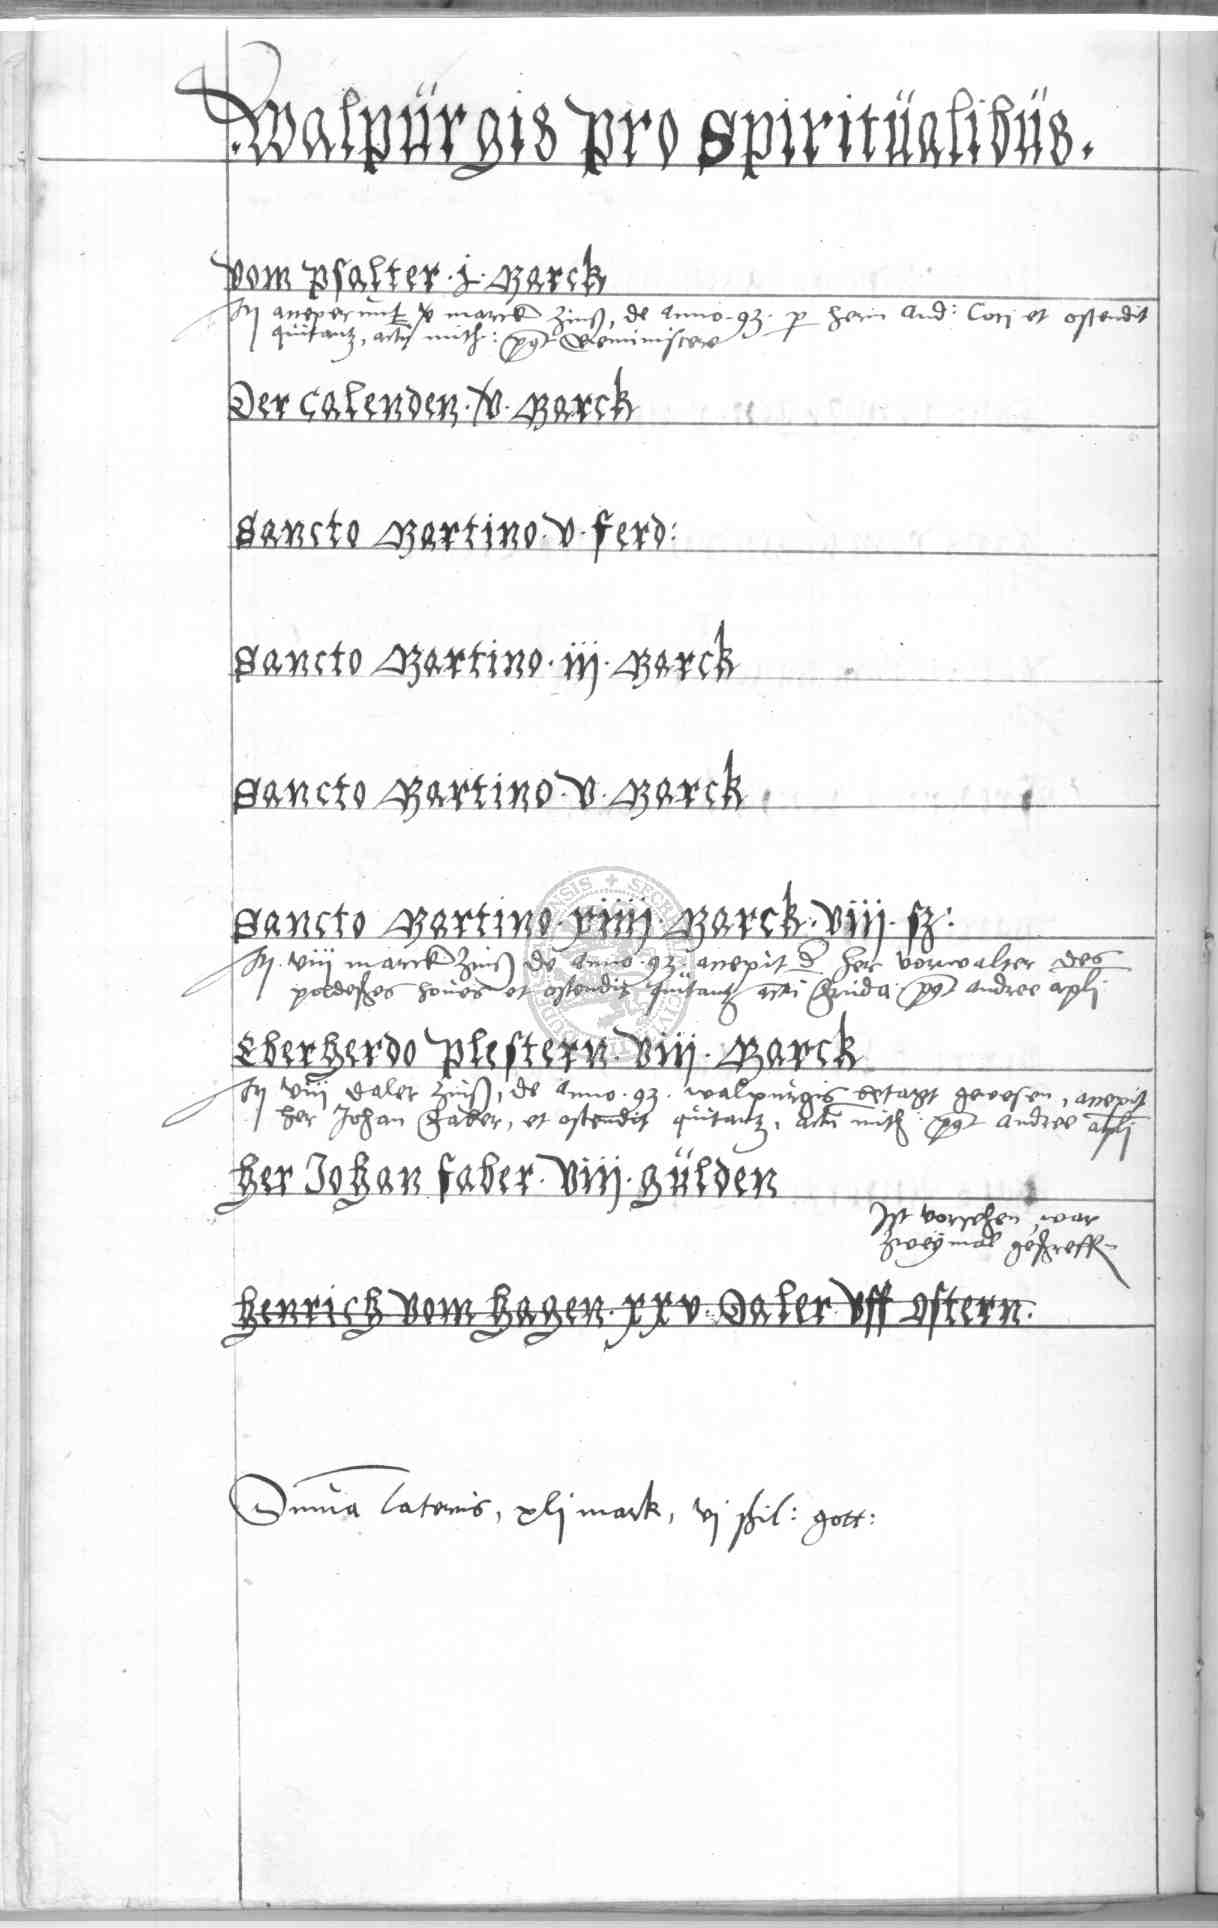 Walpürgis pro spiritüalibüs.
Vom psalter · j · Marck
It acceperunt v marck Zinß, de anno · 93 · p hern And: Cori et ostendit
quitantz, actu mith: pꝰ Reminiscere
Der Calenden · v · Marck
Sancto Martino · v · ferd:
Sancto Martino · iij · Marck
Sancto Martino · v · Marck
Sancto Martino · xiiij · Marck · viij · sz:
It · viij marck Zinß de anno · 93 · accepit d her vorwalter des
hoües et ostendit quitantz actu pꝰ Andree apli
Eberherdo Plestern · Viij · Marck
It viij daler Zinß, de anno · 93 · walpurgis betagt gewesen, accepit
her Johan Faber, et ostendit quitantz, actu mith: pꝰ Andree apli
Her Johan Faber · Viij · Gülden
Ist vorsehen, war
zweymal
Henrich vom Hagen · xxv · Daler Vff Ostern:
Suma lateris, xlj mark, vj schil: gott:
SECR CIVI BUD ENSIS